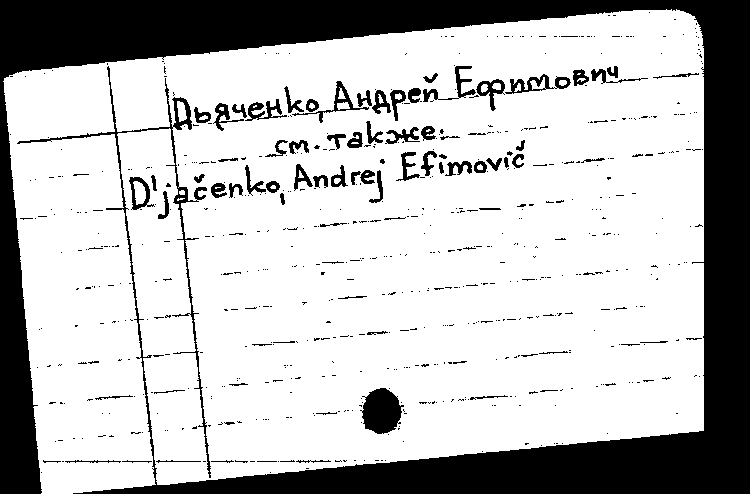 Дьяченко, Андрей Ефимович
см. также:
D'jačenko, Andrej Efimovič